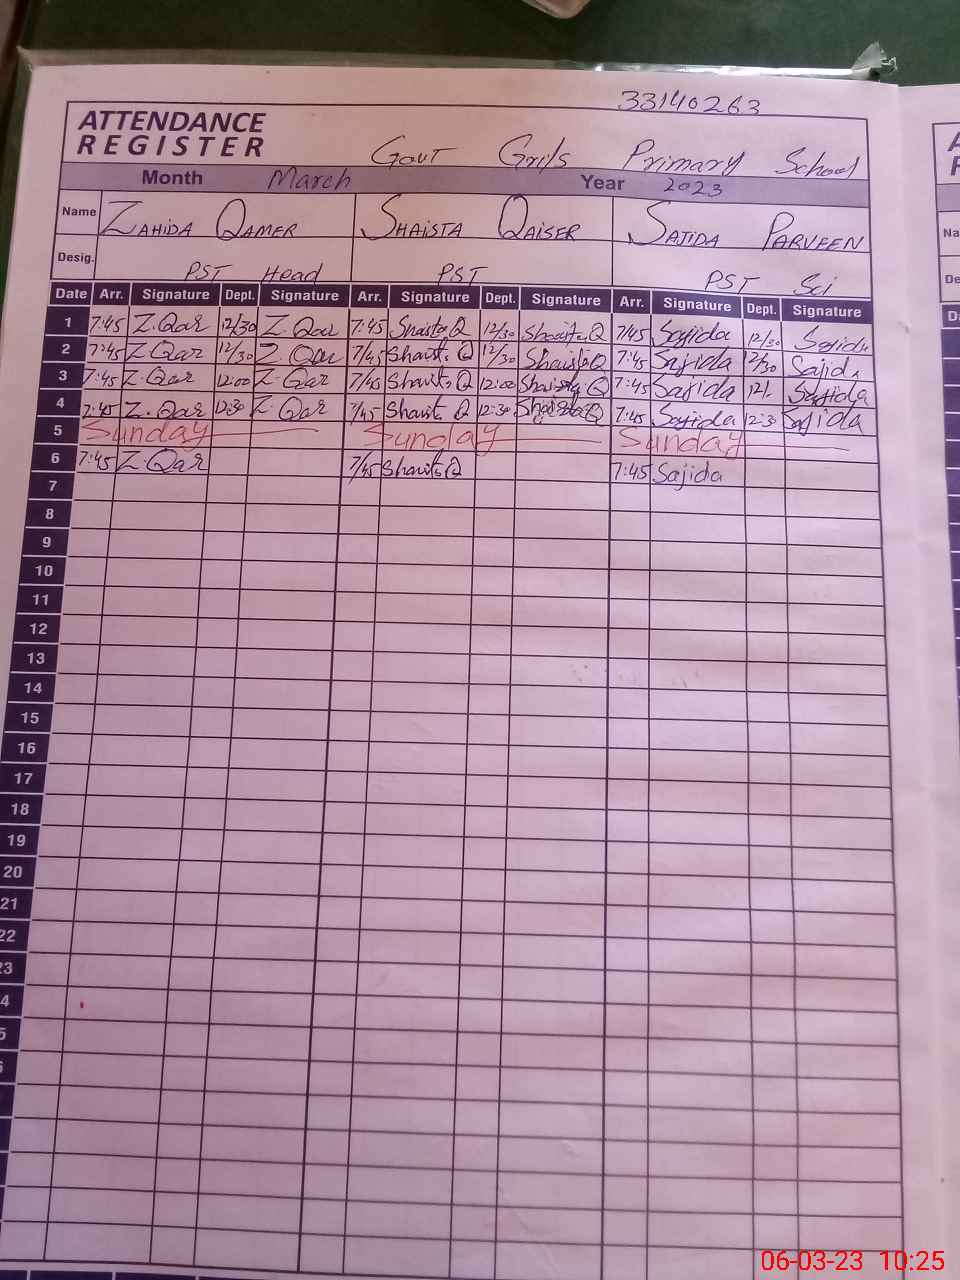 33140263
ATTENDANCE
REGISTER
Govt Grils Primary School
Month March Year 2023
Name ZAHIDA QAMER SHAISTA QAISER SAJIDA PARVEEN
Desig. PST Head PST PST Sci
Date Arr. Signature Dept. Signature Arr. Signature Dept. Signature Arr. Signature Dept. Signature
1 7:45 Z.Qar 12/30 Z.Qar 7:45 Shaista Q 12/30 Shaista Q 7/45 Sajida 12/30 Sajida
2 7:45 Z.Qar 12/30 Z.Qar 7/45 Shaista Q 12/30 Shaista Q 7:45 Sajida 12/30 Sajida
3 7:45 Z.Qar 12:00 Z.Qar 7/45 Shaista Q 12:00 Shaista Q 7:45 Sajida Sajida
4 7:45 Z.Qar 12:30 Z.Qar 7/45 Shaista Q 12:30 Shaista Q 7:45 Sajida 12:30 Sajida
5 Sunday Sunday Sunday
6 7:45 Z.Qar 7/45 Shaista Q 7:45 Sajida
7
8
9
10
11
12
13
14
15
16
17
18
19
20
21
22
23
4
5
06-03-23 10:25